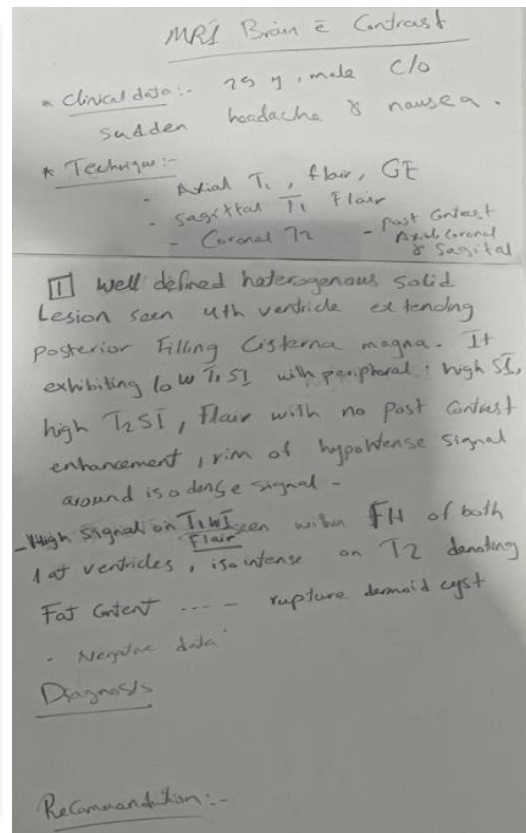 MRI Brain c̄ Contrast
* Clinical data:- 25 y, male c/o
sudden headache & nausea.
* Technique:-
- Axial T1, flair, GE
- Sagittal T1 Flair
- Coronal T2 - post Contrast
Axial, Coronal
& Sagital
1 well defined heterogenous solid
Lesion seen 4th ventricle extending
posterior Filling Cisterna magna. It
exhibiting low T1 SI with peripheral high SI,
high T2 SI, Flair with no post Contrast
enhancement, rim of hypointense signal
around isodense signal -
- High signal on T1WI seen within FH of both
Flair
lat ventricles, isointense on T2 denoting
Fat Content ---- rupture dermoid cyst
- Negative data
Diagnosis
Recommendation:-